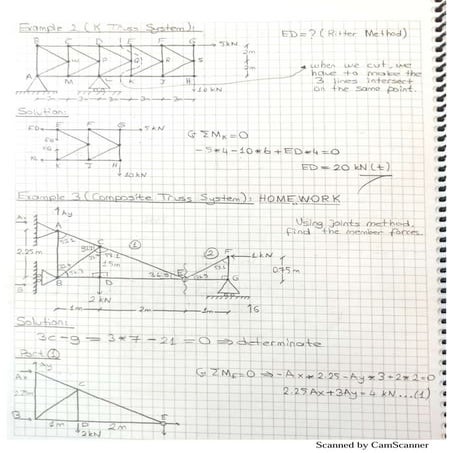 Example 2 (K Truss System):
ED=? (Ritter Method)
B C D E F G
5kN
2m
2m
A M L K J H
10kN
3m 3m 3m 3m 3m
* when we cut, we
have to make the
3 lines intersect
on the same point.
Solution:
ED E F G 5kN
K J H
10kN
G ΣMK=0
-5*4-10*6+ED*4=0
ED = 20 kN(t)
Example 3 (Composite Truss System): HOMEWORK
Using joints method,
find the member forces.
Ax Ay
A
C ①
2.25m
1.5m
E ② F 1kN
0.75m
B D G
2 kN
1m 2m 1m
16
Solution:
3c-g = 3*7-21=0 ⇒ determinate
Part ①
Ay
Ax
C
B D E
2kN
1m 2m
G ΣME=0 ⇒ -Ax*2.25-Ay*3+2*2=0
2.25Ax+3Ay=4 kN ...(1)
Scanned by CamScanner